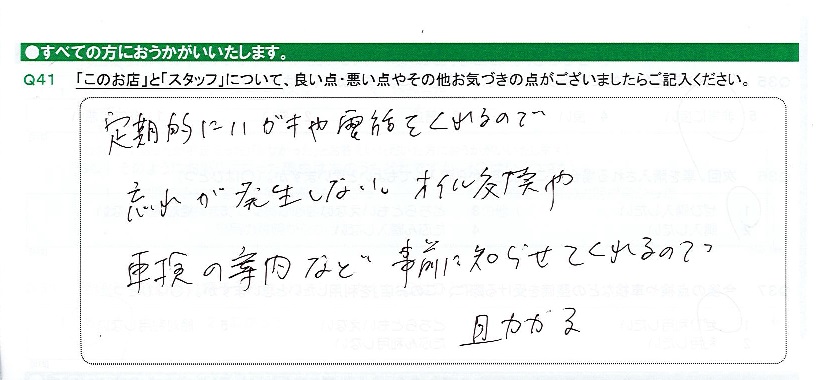 ●すべての方におうかがいいたします。
Q41 「このお店」と「スタッフ」について、良い点・悪い点やその他お気づきの点がございましたらご記入ください。
定期的にハガキや電話をくれるので
忘れが発生しない。オイル交換や
車検の案内など事前に知らせてくれるので
助かる